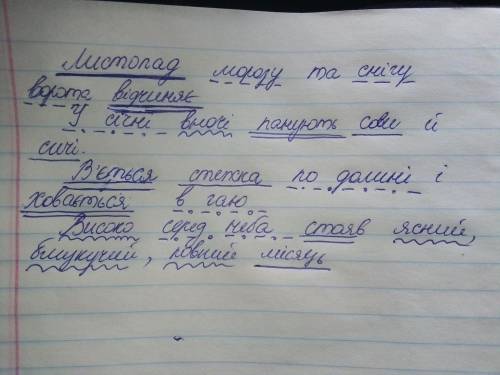 Листопад морозу та снігу
ворота відчиняє
У січні вночі панують сови й
сичі.
В'ється стежка по долині і
ховається в гаю
Високо серед неба стояв ясний,
блискучий, повний місяць